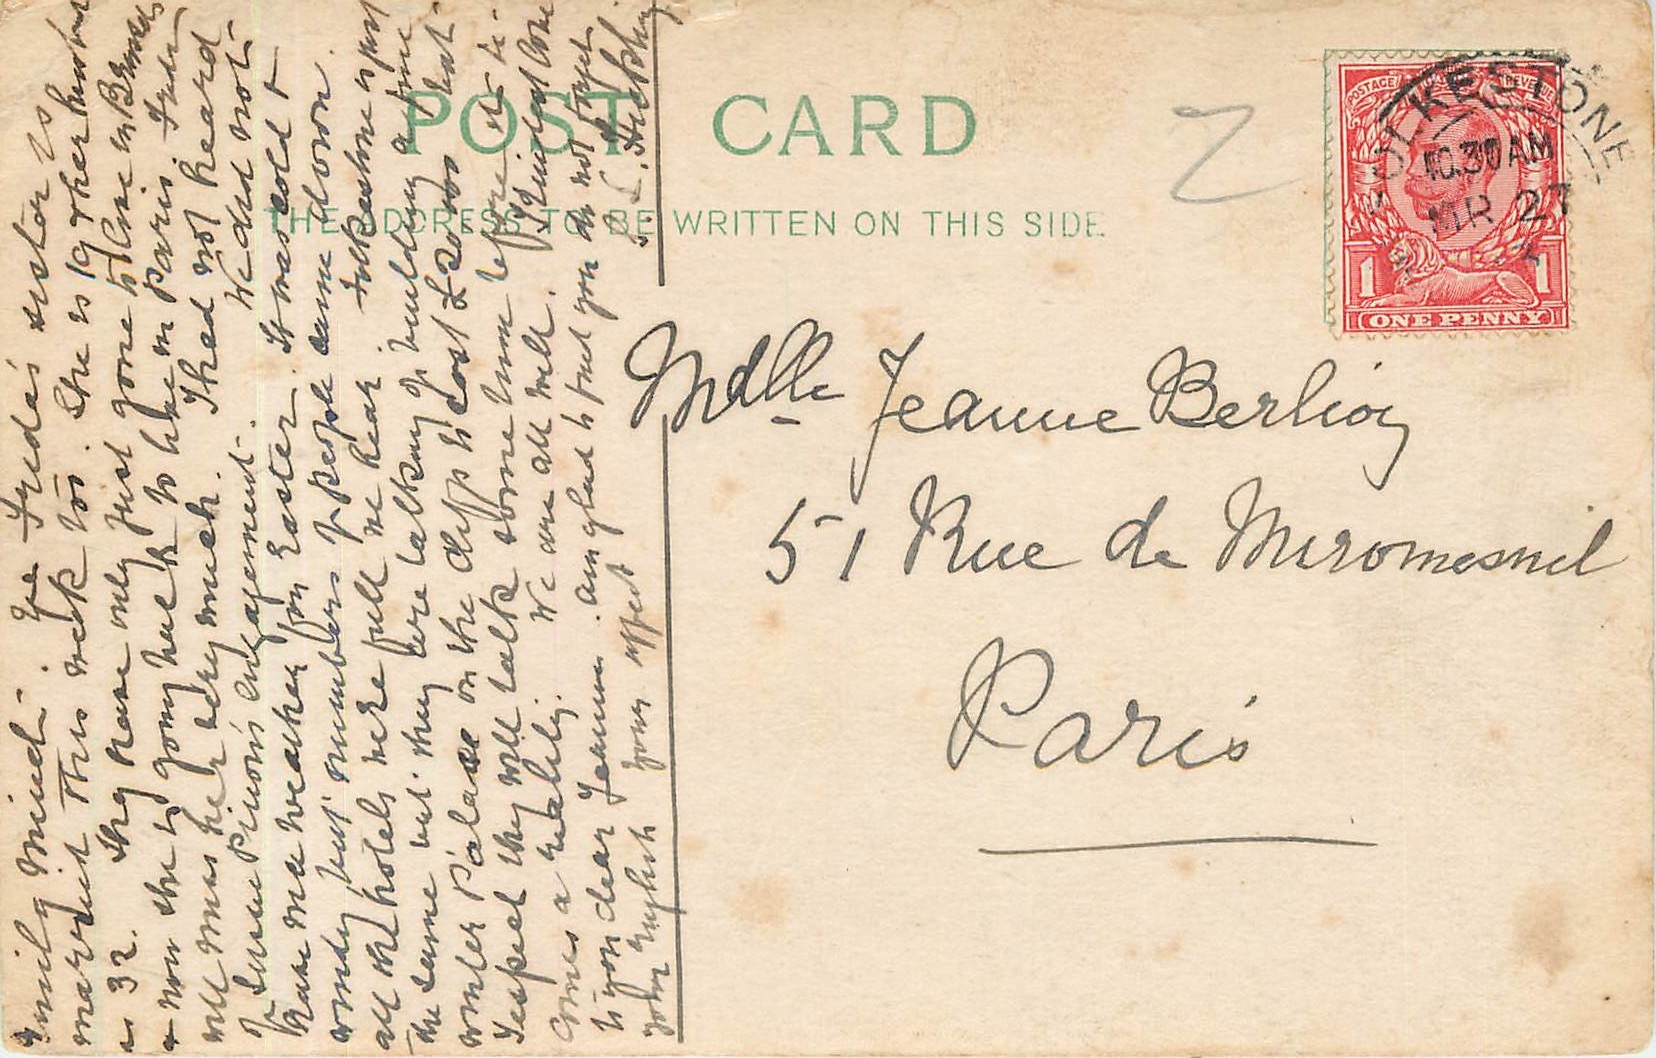 POST CARD
THE ADDRESS TO BE WRITTEN ON THIS SIDE.
POSTAGE REVENUE
FOLKESTONE
10.30 AM
MR 27
1 1
ONE PENNY
2
Mdlle Jeanne Berlioz
51 Rue de Miromesnil
Paris
family mind. Freda's sister is
married this week too. She is 19 & her husband
is 32. They have only just gone to live in
& now she is going back to live in Paris. Freda
will miss her very much. I had not heard
of engagement. We did not
have nice weather for Easter. It was cold &
windy, but numbers of people came down.
all the hotels were full we hear. Folkestone is just
the same but they are talking of building a fine
winter Palace on the cliffs to cost £20,000 but
I expect they will talk some time before it
comes a reality. We are all well. Kindest love
to you dear Jeanne. am glad to find you do not forget
your English yours affect